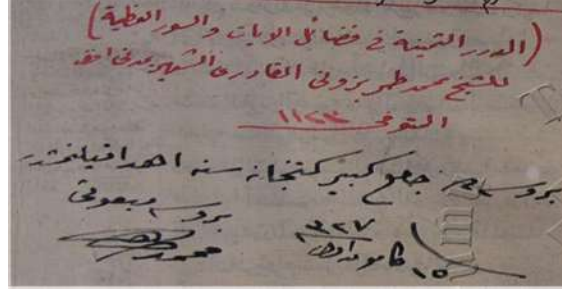 (الدرر الثمينة في فضائل الايات والسور العظيمة)
للشيخ محمد طهر بزونى القادرى الشهير
المتوفى ١١٢٣
بروسه ده جامع كبير كتبخانه سنه اهدا قيلنمشدر
بروسه مبعوثى
محمد طاهر
١٥ كانون اول ٣٢٧